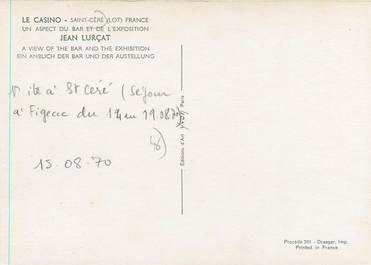 LE CASINO - SAINT-CÉRÉ (LOT) FRANCE
UN ASPECT DU BAR ET DE L'EXPOSITION
JEAN LURÇAT
A VIEW OF THE BAR AND THE EXHIBITION
EIN ANBLICH DER BAR UND DER AUSTELLUNG
à St Céré (Séjour
à Figeac du 14 en 19.08.70
15.08.70
Editions d'Art YVON Paris
Procédé 301 - Draeger, Imp.
Printed in France